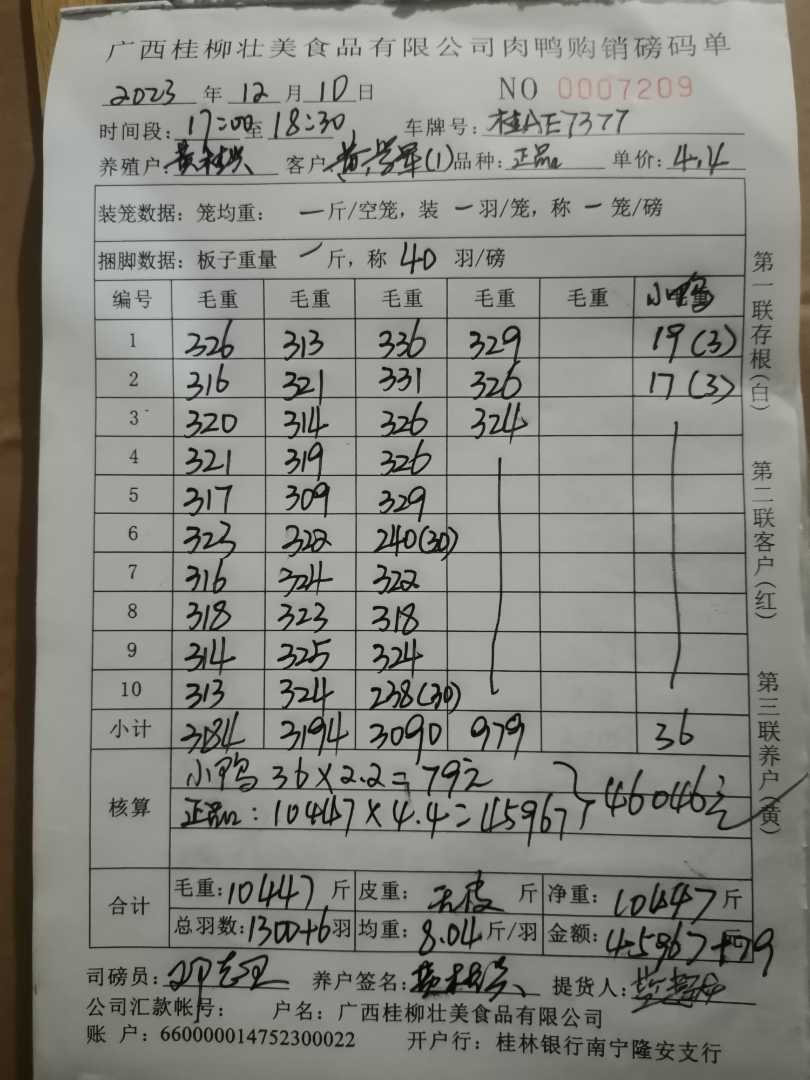 广西桂柳壮美食品有限公司肉鸭购销磅码单
2023 年 12 月 10 日 NO 0007209
时间段：17:00 至 18:30 车牌号：桂AE7377
养殖户： 客户： (1) 品种：正品 单价：4.4
装笼数据：笼均重： 一斤/空笼，装 一羽/笼，称 一笼/磅
捆脚数据：板子重量 一斤，称 40 羽/磅
编号 毛重 毛重 毛重 毛重 毛重 小鸭
1 326 313 336 329 19(3)
2 316 321 331 326 17(3)
3 320 314 326 324
4 321 319 326
5 317 309 329
6 323 322 240(30)
7 316 324 322
8 318 323 318
9 314 325 324
10 313 324 238(30)
小计 3184 3194 3090 979 36
核算
小鸭 36×2.2=79元
正品：10447×4.4=45967 } 46046元
合计
毛重：10447 斤 皮重：无皮 斤 净重：10447 斤
总羽数：1300+6 羽 均重：8.04 斤/羽 金额：45967+79
司磅员： 养户签名： 提货人：
公司汇款帐号： 户名：广西桂柳壮美食品有限公司
账 户：660000014752300022 开户行：桂林银行南宁隆安支行
第一联存根(白)
第二联客户(红)
第三联养户(黄)